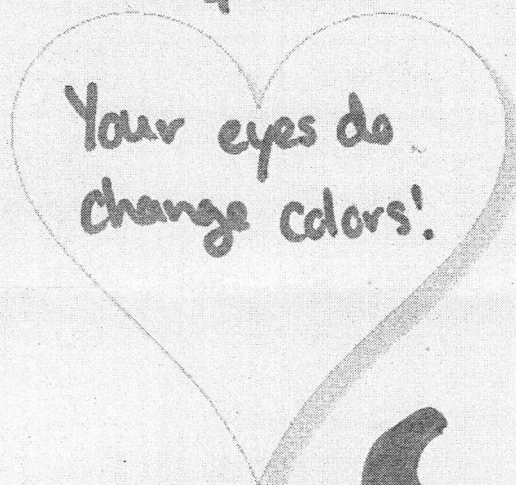 Your eyes do
change colors!